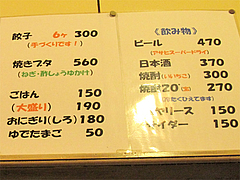 餃子 6ヶ 300
(手づくりです!)
焼きブタ 560
(ねぎ・酢しょうゆかけ)
ごはん 150
(大盛り) 190
おにぎり(しろ) 180
ゆでたまご 50
《飲み物》
ビール 470
(アサヒスーパードライ)
日本酒 370
焼酎(いいちこ) 300
焼酎20° 270
たくひえてます)
150
イダー 150